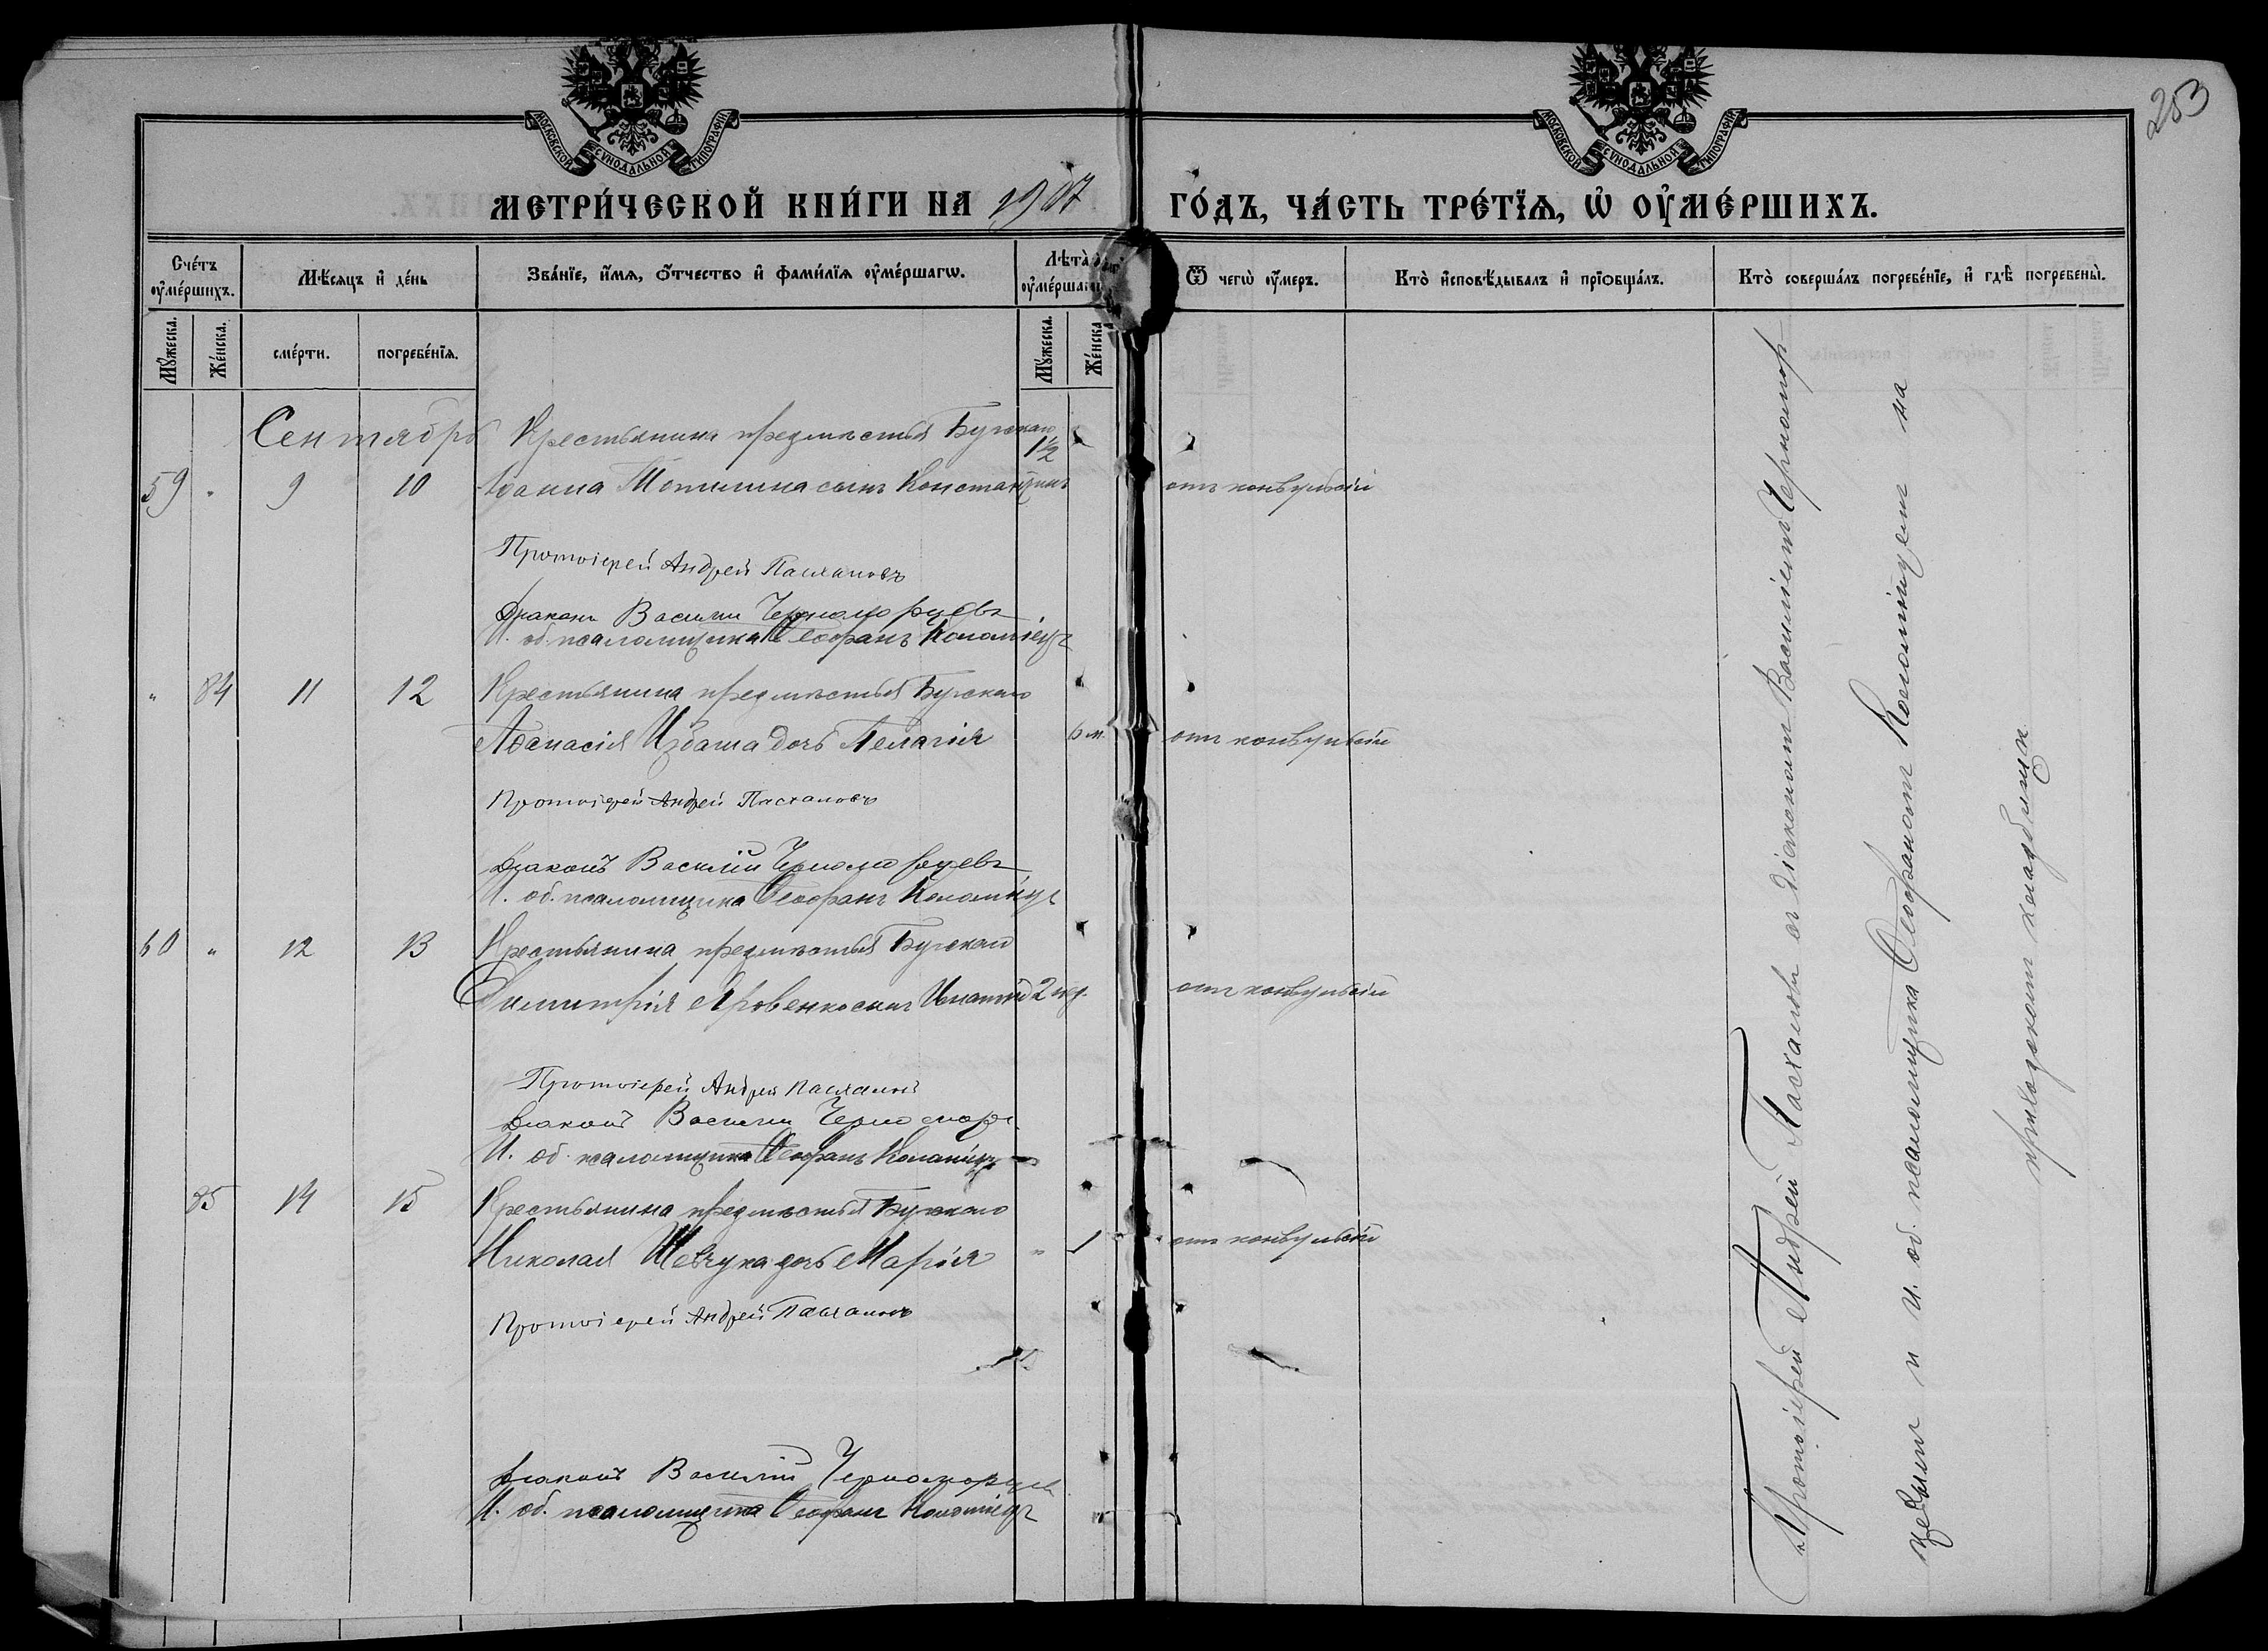 253
МОСКОВСКОЙ СѴНОДАЛЬНОЙ ТИПОГРАФІИ
МОСКОВСКОЙ СѴНОДАЛЬНОЙ ТИПОГРАФІИ
МЕТРИ́ЧЕСКОЙ КНИ́ГИ НА 1907 ГО́ДЪ, ЧА́СТЬ ТРЕ́ТЇѦ, Ѡ҆ ОУ҆МЕ́РШИХЪ.
Сче́тъ оу҆ме́ршихъ.
Мѣ́сѧцъ и҆ де́нь
Зва́нїе, и҆́мѧ, ѻ҆́тчество и҆ фами́лїѧ оу҆ме́ршагѡ.
Лѣ́та оу҆ме́ршагѡ
Ѿ чегѡ̀ оу҆́меръ.
Кто̀ и҆сповѣ́дывалъ и҆ прїѡбща́лъ.
Кто̀ соверша́лъ погребе́нїе, и҆ гдѣ̀ погребены̀.
Мꙋ́жеска.
Же́нска.
сме́рти.
погребе́нїѧ.
Мꙋ́жеска.
Же́нска
Сентябрь Крестьянина предмѣстья Бугскаго 1½
59 " 9 10 Іоанна сынъ Константинъ отъ конвульсіи
Протоіерей Андрей Пасхаловъ
Діаконъ Василій Черноморцевъ
И. об. псаломщика Ѳеофанъ Коломіецъ
" 84 11 12 Крестьянина предмѣстья Бугскаго
Аѳанасія Избаша дочь Пелагія 6 м. отъ конвульсіи
Протоіерей Андрей Пасхаловъ
Діаконъ Василій Черноморцевъ
И. об. псаломщика Ѳеофанъ Коломіецъ
60 " 12 13 Крестьянина предмѣстья Бугскаго
Димитрія Яровенко сынъ Игнатій 2 нед. отъ конвульсіи
Протоіерей Андрей Пасхаловъ
Діаконъ Василій Черномор
И. об. псаломщика Ѳеофанъ Коломіецъ
85 14 15 Крестьянина предмѣстья Бугскаго
Николая Шевчука дочь Марія " 1 отъ конвульсіи
Протоіерей Андрей Пасхаловъ
Діаконъ Василій Черноморцев
И. об. псаломщика Ѳеофанъ Коломіецъ
Протоіерей Андрей Пасхаловъ съ діакономъ Василіемъ Черномор-
цевымъ и и. об. псаломщика Ѳеофаномъ Коломійцемъ на
приходскомъ кладбищѣ